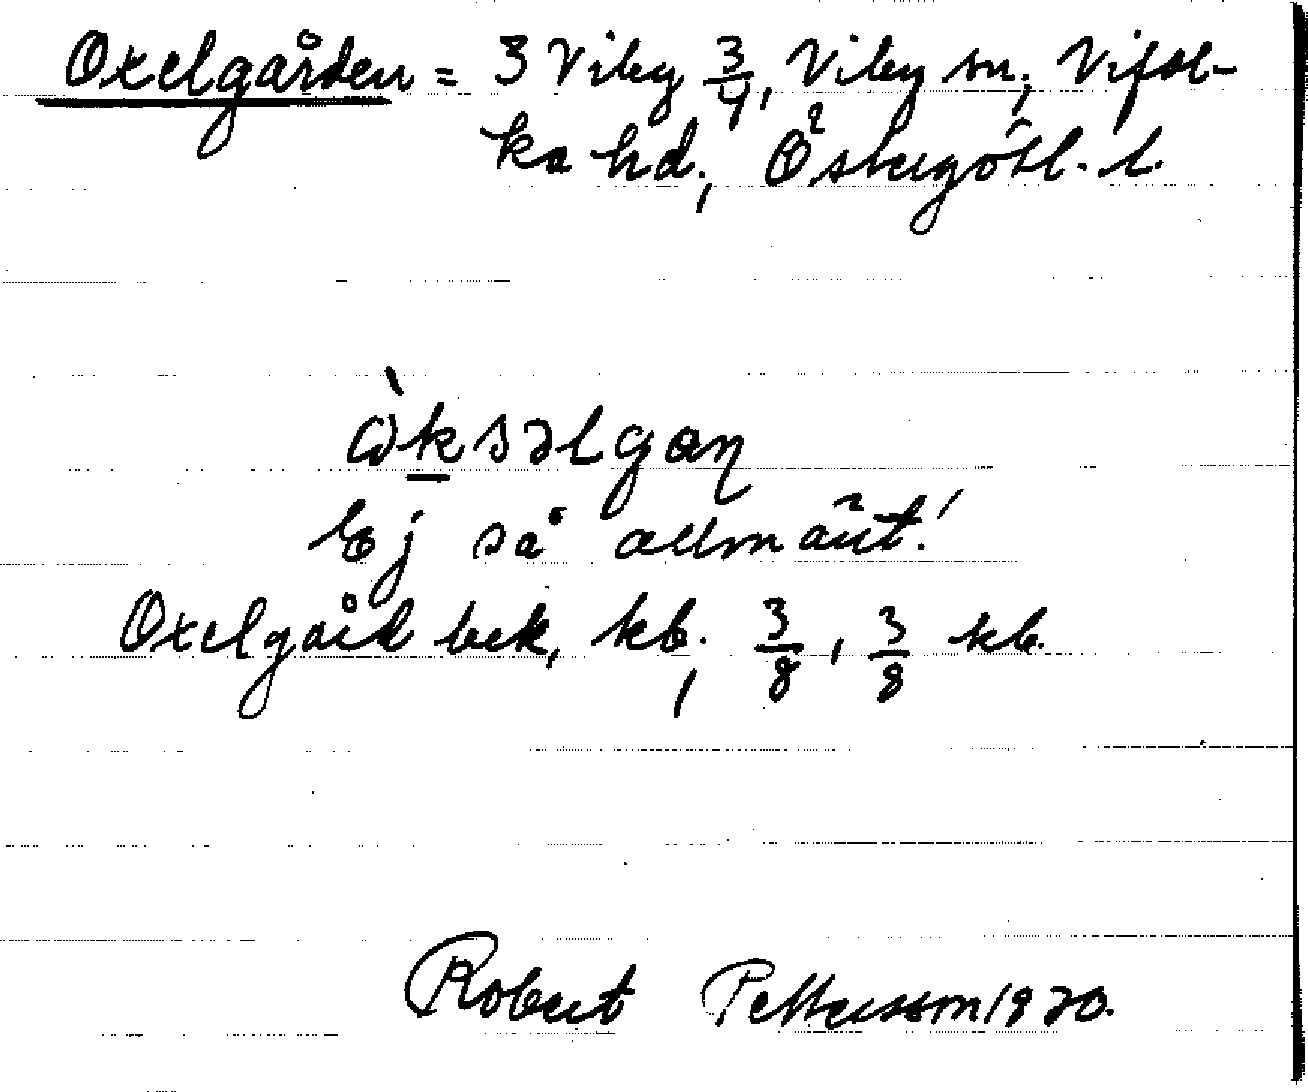 Oxelgården = 3 Viby 3/4, Viby sn, Vifol-
ka hd., Östergötl. l.
Ej så allmänt!
Oxelgård bek, kb., 3/8, 3/8 kb.
Robert Pettersson 1920.